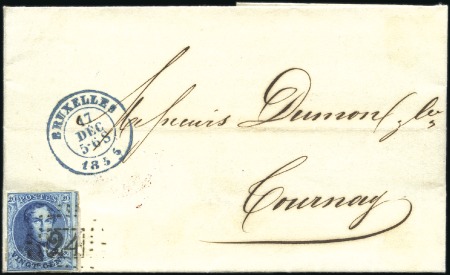 BRUXELLES
17
DEC
5-6S
1855
Messieurs Dumon
Tournay
POSTES
24
VINGT CEN